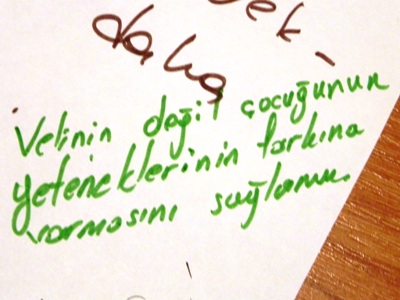 daha
Velinin değil çocuğunun
yeteneklerinin farkına
varmasını sağlamak.